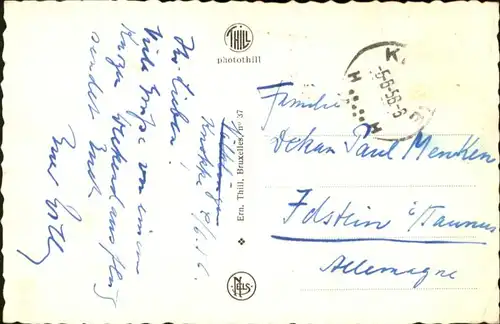 Knokke 8/6.56.
Ihr Lieben!
Viele Grüße von einem
kurzen Wochenendausflug
sendet Euch
Euer
THILL
photothill
Ern. Thill, Bruxelles, nº 37
NELS
K
-5-6-56-9
Familie
Dekan Paul Mencken
Idstein i/Taunus
Allemagne